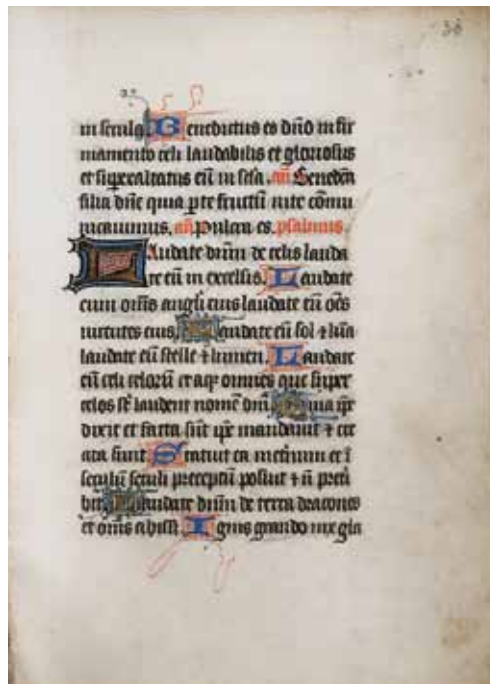 38
in secula Benedictus es dñe in fir
mamento celi laudabilis et gloriosus
et supexaltatus eũ in scła. añ Benedca
filia dñe quia p te fructũ vite cõmu
nicauimus. añ Pulcra es. psalmus
Laudate dnm̃ de celis lauda
te eũ in excelsis. Laudate
eum oms̃ angłi eius laudate eũ oẽs
uirtutes eius. Laudate eũ sol ⁊ luna
laudate eũ stelle ⁊ lumen. Laudate
eũ celi celorũ et aq̃ omnes que super
celos st̃ laudent nomẽ dnĩ. Quia ip̃e
dixit et facta sũt ip̃e mandauit ⁊ cre
ata sunt Statuit ea in eternum et ĩ
seculũ seculi preceptũ posuit ⁊ ñ preti
bit Laudate dnm̃ de terra dracones
et oms̃ abissi. Ignis grando nix gla